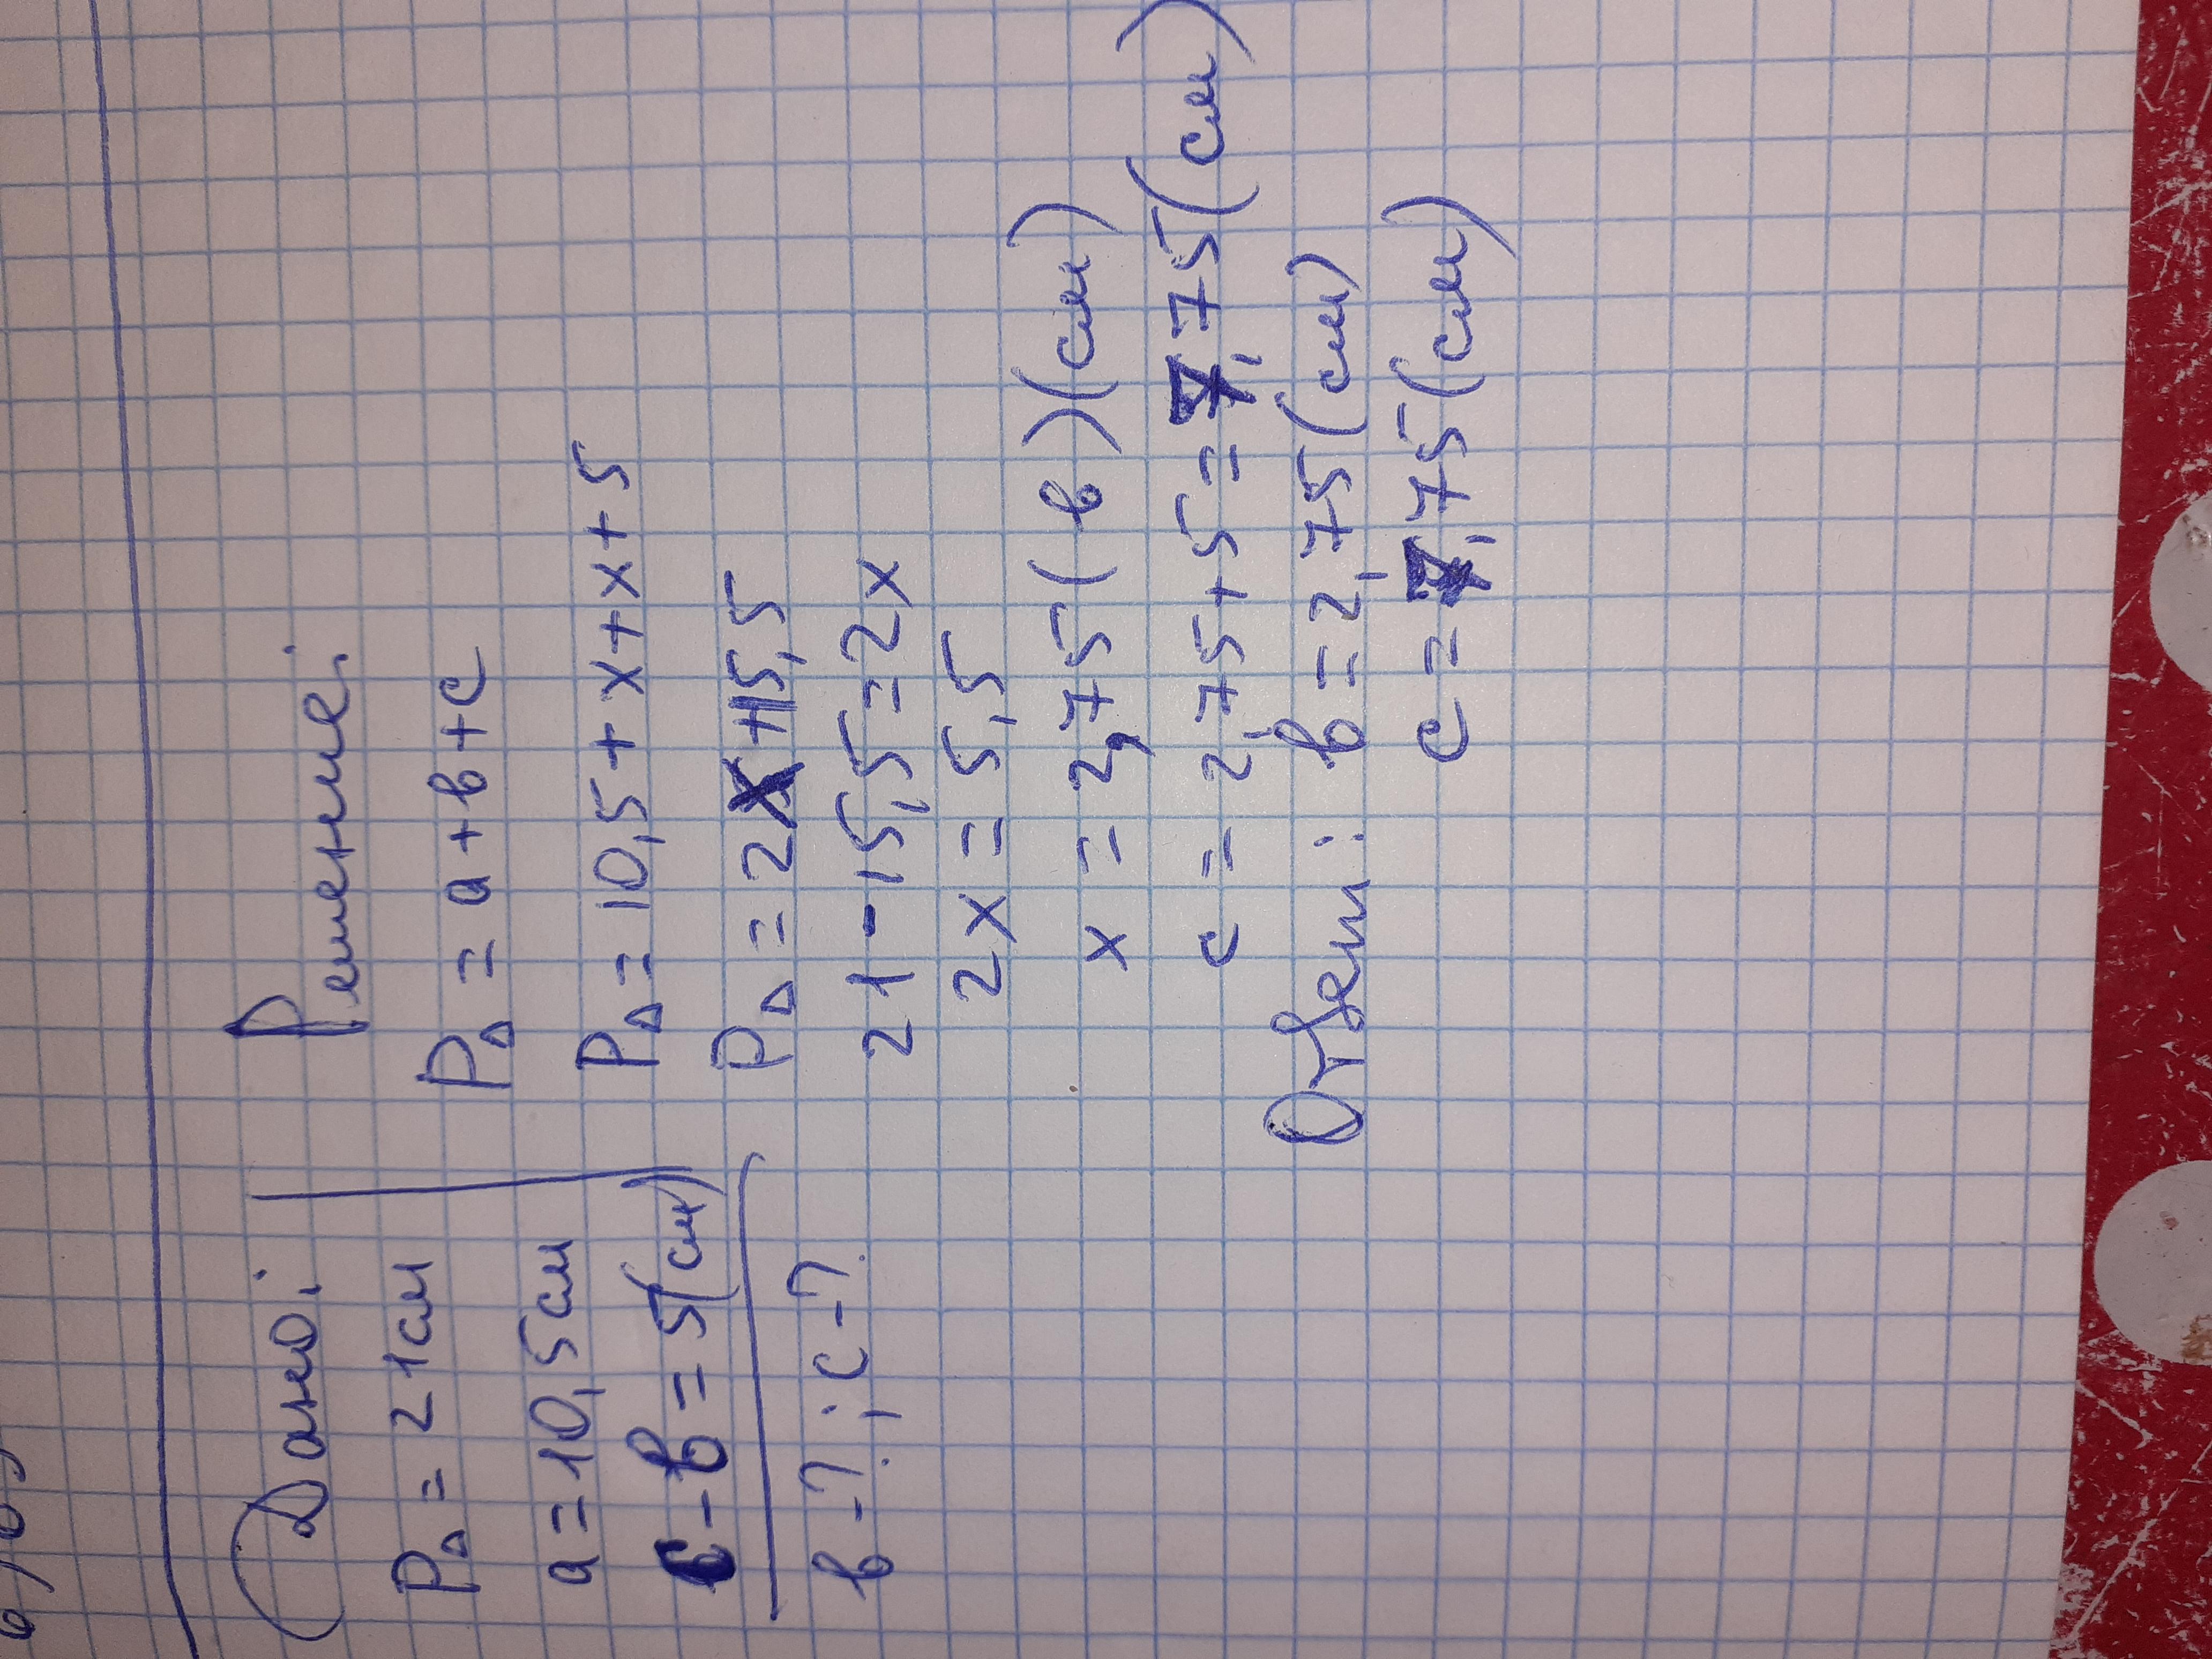 Дано:
P△ = 21см
a = 10,5см
c - b = 5(см)
b - ?; c - ?
Решение:
P△ = a + b + c
P△ = 10,5 + x + x + 5
P△ = 2x + 15,5
21 - 15,5 = 2x
2x = 5,5
x = 2,75 (b) (см)
c = 2,75 + 5 = 7,75 (см)
Ответ: b = 2,75 (см)
c = 7,75 (см)